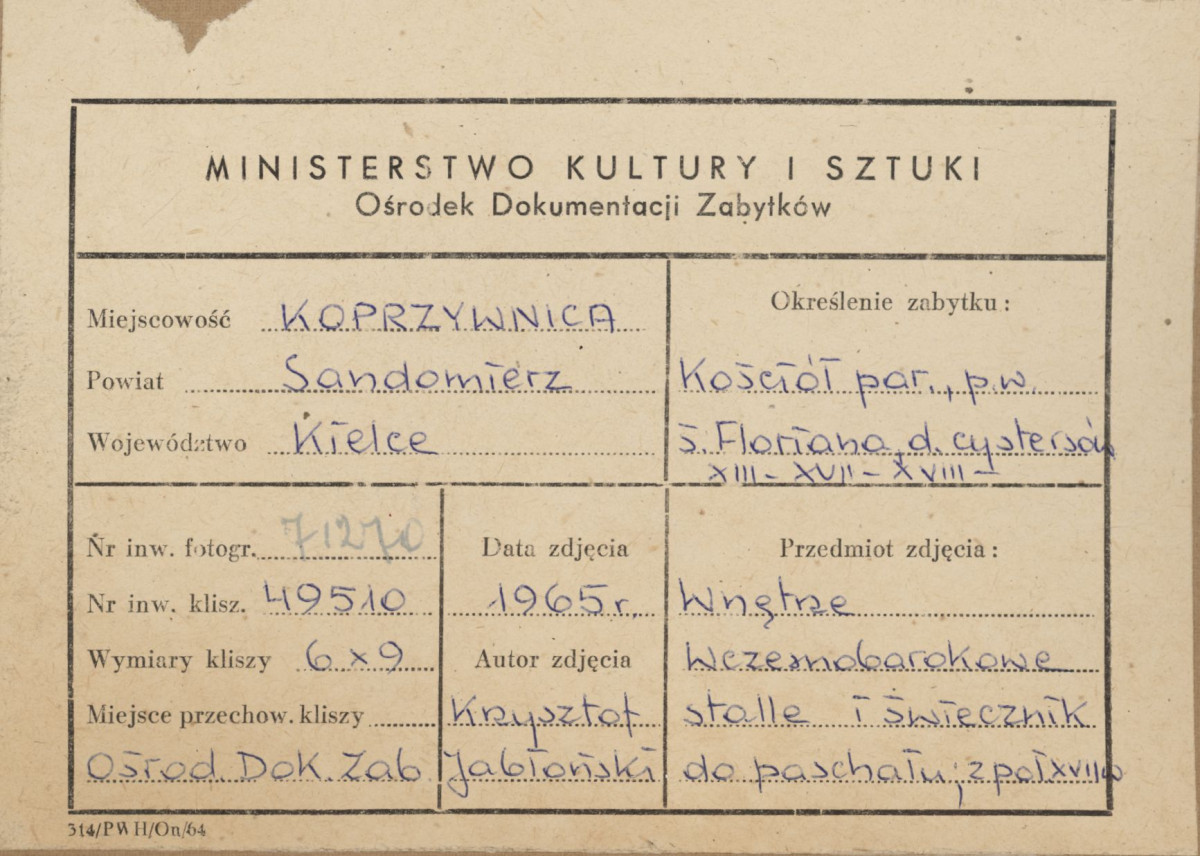 MINISTERSTWO KULTURY I SZTUKI
Ośrodek Dokumentacji Zabytków
Miejscowość KOPRZYWNICA
Powiat Sandomierz
Województwo Kielce
Określenie zabytku:
Kościół par., p.w.
ś. Floriana, d. cystersów
XIII - XVII - XVIII -
Nr inw. fotogr. 71270
Nr inw. klisz. 49510
Wymiary kliszy 6 x 9
Miejsce przechow. kliszy
Ośrod. Dok. Zab
Data zdjęcia
1965 r.
Autor zdjęcia
Krzysztof
Jabłoński
Przedmiot zdjęcia:
Wnętrze
Wczesnobarokowe
stalle i świecznik
do paschału; z poł XVII w
314/PWH/On/64